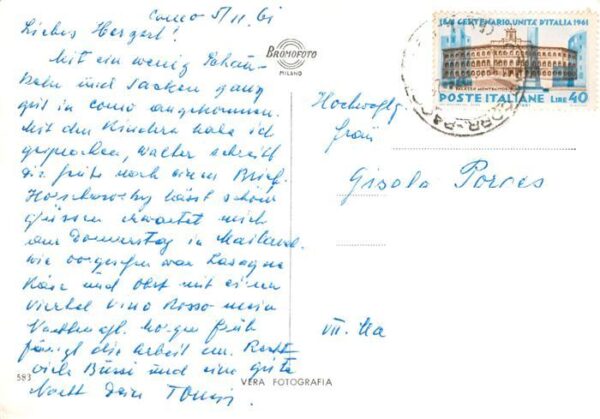 Como 5/11/61
Liebes Herzerl!
Mit ein wenig
und ganz
gut in Como angekommen.
Mit den Kindern habe ich
gesprochen, Walter schreibt
dir heute noch einen Brief.
lässt schön
grüssen erwartet mich
am Donnerstag in Mailand.
Wie vorgesehen war Lasagne
Käse und Obst mit einem
Viertel Vino Rosso mein
Morgen früh
fängt die Arbeit an. Recht
viele Bussi und eine gute
Nacht Dein
583
VERA FOTOGRAFIA
BROMOFOTO
MILANO
CENTENARIO UNITÀ D'ITALIA 1961
PALAZZO MONTECITORIO
POSTE ITALIANE LIRE 40
Frau
Gisela Porges
VII.